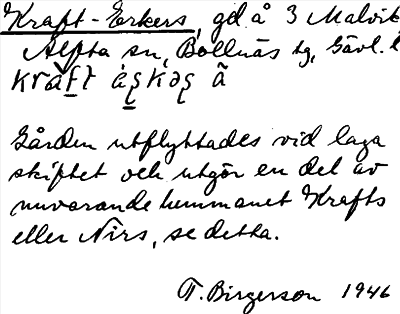 Kraft-Erkers, gd å 3 Malvik
Alfta sn, Bollnäs tg, Gävl. l
Gården utflyttades vid laga
skiftet och utgör en del av
nuvarande hemmanet Krafts
eller Nirs, se detta.
T. Birgerson 1946